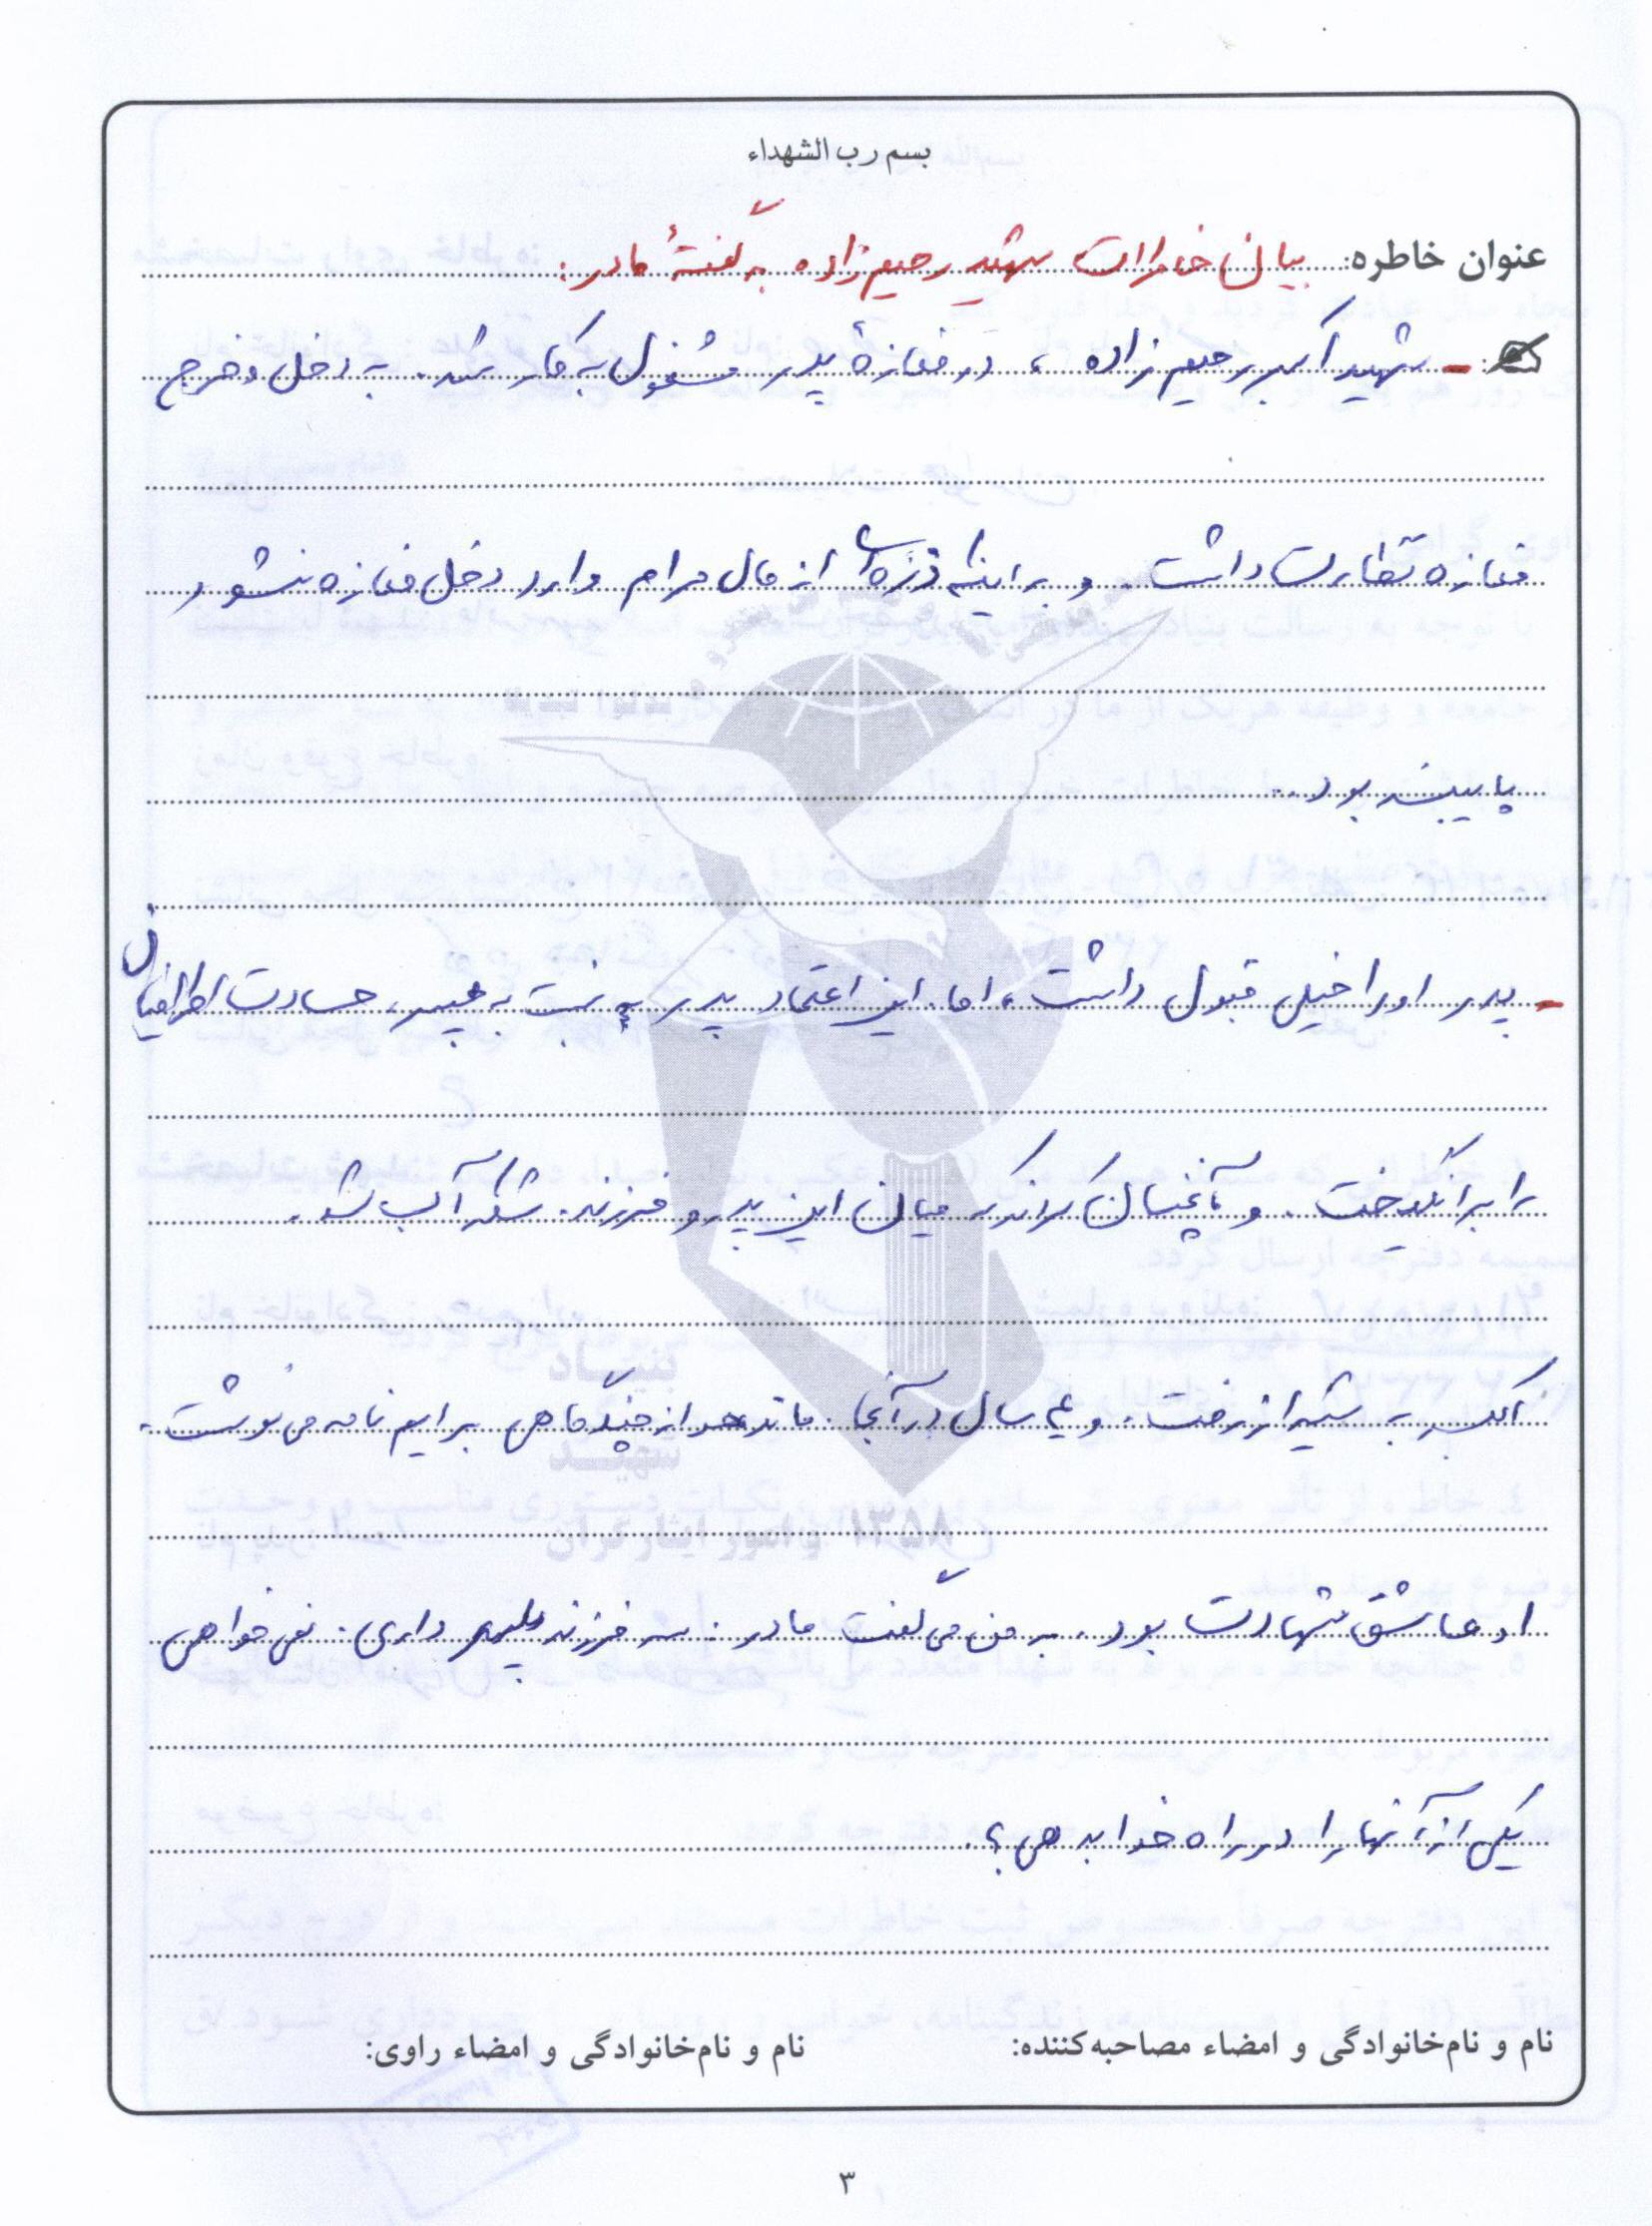 بسم رب الشهداء
عنوان خاطره: بیان خاطرات شهید رحیم زاده به گفتهٔ مادر:
- شهید اکبر رحیم زاده ، در مغازهٔ پدر مشغول به کار شد. به دخل و خرج
مغازه نظارت داشت. و بر اینکه ذره ای از مال حرام وارد دخل مغازه نشود
پایبند بود.
- پدر او را خیلی قبول داشت، اما این اعتماد پدر نسبت به پسر، حسادت اطرافیان
را برانگیخت. و آنچنان کردند که میان این پدر و فرزند. شکرآب شد.
اکبر به شیراز رفت. و سال در آنجا ماند هر از چند گاهی برایم نامه می نوشت.
او عاشق شهادت بود. به من می گفت مادر: سه فرزند پسر داری. نمی خواهی
یکی از آنها را در راه خدا بدهی؟
نام و نام‌خانوادگی و امضاء مصاحبه‌کننده: نام و نام‌خانوادگی و امضاء راوی:
۳